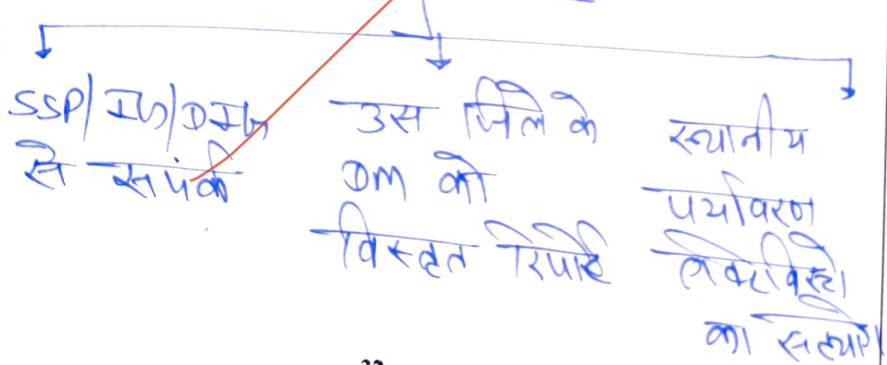 SSP/IG/DIG
से सपंर्क
उस जिले के
DM को
विस्तृत रिपोर्ट
स्थानीय
पर्यावरण
का सहयोग